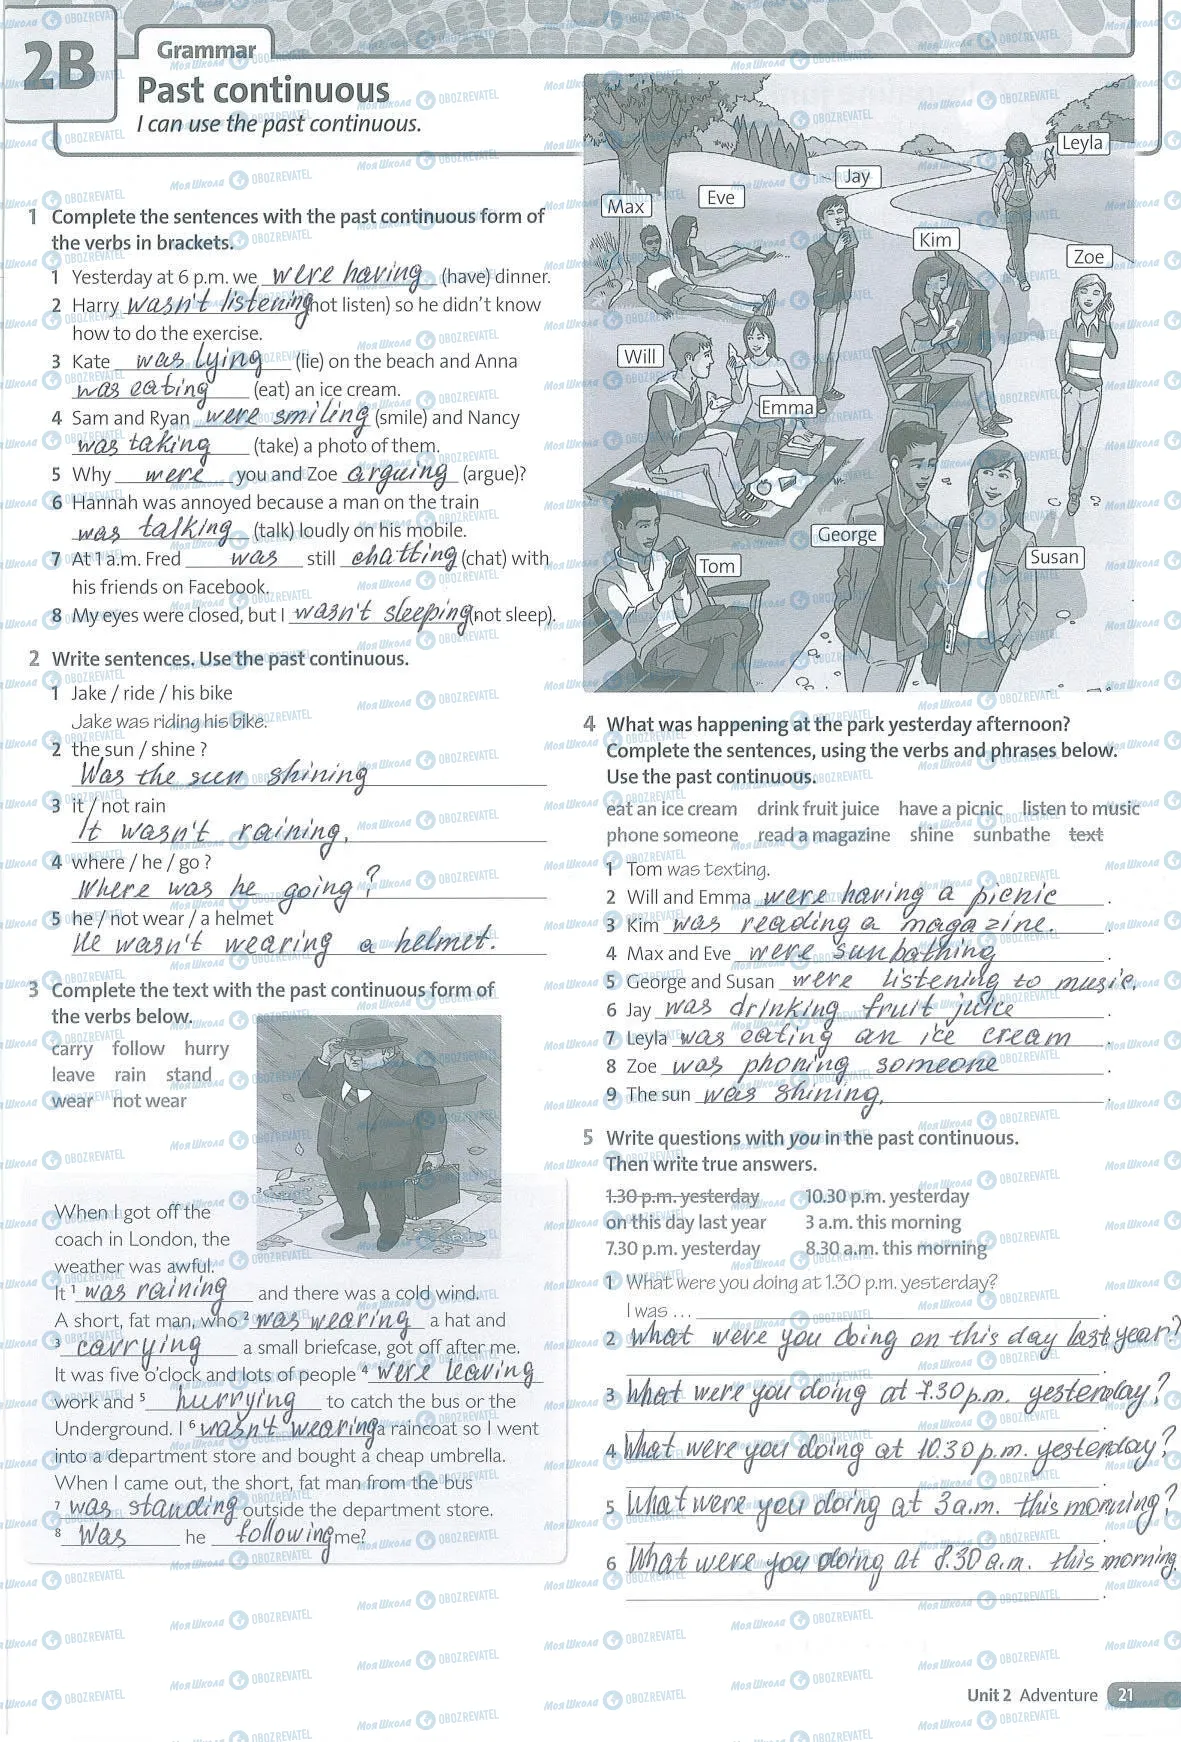 2B
Grammar
Past continuous
I can use the past continuous.
1 Complete the sentences with the past continuous form of
the verbs in brackets.
1 Yesterday at 6 p.m. we were having (have) dinner.
2 Harry wasn't listening (not listen) so he didn't know
how to do the exercise.
3 Kate was lying (lie) on the beach and Anna
was eating (eat) an ice cream.
4 Sam and Ryan were smiling (smile) and Nancy
was taking (take) a photo of them.
5 Why were you and Zoe arguing (argue)?
6 Hannah was annoyed because a man on the train
was talking (talk) loudly on his mobile.
7 At 1 a.m. Fred was still chatting (chat) with
his friends on Facebook.
8 My eyes were closed, but I wasn't sleeping (not sleep).
2 Write sentences. Use the past continuous.
1 Jake / ride / his bike
Jake was riding his bike.
2 the sun / shine ?
Was the sun shining
3 it / not rain
It wasn't raining.
4 where / he / go ?
Where was he going?
5 he / not wear / a helmet
He wasn't wearing a helmet.
3 Complete the text with the past continuous form of
the verbs below.
carry follow hurry
leave rain stand
wear not wear
When I got off the
coach in London, the
weather was awful.
It 1 was raining and there was a cold wind.
A short, fat man, who 2 was wearing a hat and
3 carrying a small briefcase, got off after me.
It was five o'clock and lots of people 4 were leaving
work and 5 hurrying to catch the bus or the
Underground. I 6 wasn't wearing a raincoat so I went
into a department store and bought a cheap umbrella.
When I came out, the short, fat man from the bus
7 was standing outside the department store.
8 Was he following me?
Max
Eve
Jay
Leyla
Kim
Zoe
Will
Emma
George
Tom
Susan
4 What was happening at the park yesterday afternoon?
Complete the sentences, using the verbs and phrases below.
Use the past continuous.
eat an ice cream drink fruit juice have a picnic listen to music
phone someone read a magazine shine sunbathe text
1 Tom was texting.
2 Will and Emma were having a picnic .
3 Kim was reading a magazine. .
4 Max and Eve were sunbathing .
5 George and Susan were listening to music.
6 Jay was drinking fruit juice .
7 Leyla was eating an ice cream .
8 Zoe was phoning someone .
9 The sun was shining. .
5 Write questions with you in the past continuous.
Then write true answers.
1.30 p.m. yesterday 10.30 p.m. yesterday
on this day last year 3 a.m. this morning
7.30 p.m. yesterday 8.30 a.m. this morning
1 What were you doing at 1.30 p.m. yesterday?
I was ... .
2 What were you doing on this day last year?
3 What were you doing at 7.30 p.m. yesterday?
4 What were you doing at 10.30 p.m. yesterday?
5 What were you doing at 3 a.m. this morning?
6 What were you doing at 8.30 a.m. this morning.
Unit 2 Adventure 21
МояШкола OBOZREVATEL